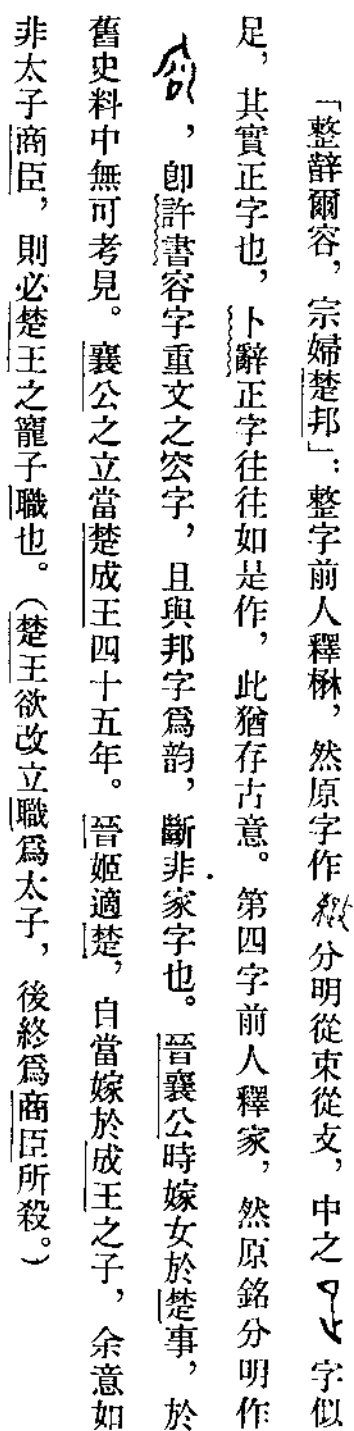 「整辥爾容，宗婦楚邦」：整字前人釋𣏟，然原字作 分明從束從攴，中之 字似
足，其實正字也，卜辭正字往往如是作，此猶存古意。第四字前人釋家，然原銘分明作
，卽許書容字重文之㝐字，且與邦字爲韵，斷非家字也。晉襄公時嫁女於楚事，於
舊史料中無可考見。襄公之立當楚成王四十五年。晉姬適楚，自當嫁於成王之子，余意如
非太子商臣，則必楚王之寵子職也。（楚王欲改立職爲太子，後終爲商臣所殺。）